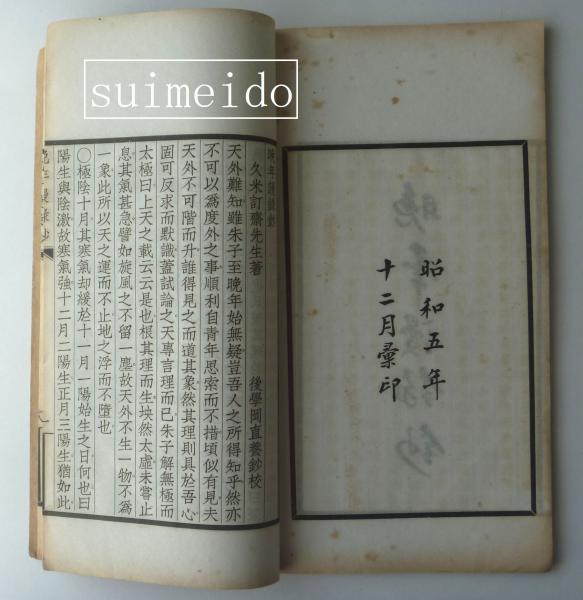 suimeido
昭和五年
十二月彙印
晩年謾録鈔
久米訂齋先生著 後學岡直養鈔校
天外難知雖朱子至晩年始無疑豈吾人之所得知乎然亦
不可以爲度外之事順利自青年思索而不措頃似有見夫
天外不可階而升誰得見之而道其象然其理則具於吾心
固可反求而默識蓋試論之天專言理而已朱子解無極而
太極曰上天之載云云是也根其理而生坱然太虛未嘗止
息其氣甚急譬如旋風之不留一塵故天外不生一物不爲
一象此所以天之運而不止地之浮而不墮也
〇極陰十月其寒氣却緩於十一月一陽始生之日何也曰
陽生與陰激故寒氣強十二月二陽生正月三陽生猶如此